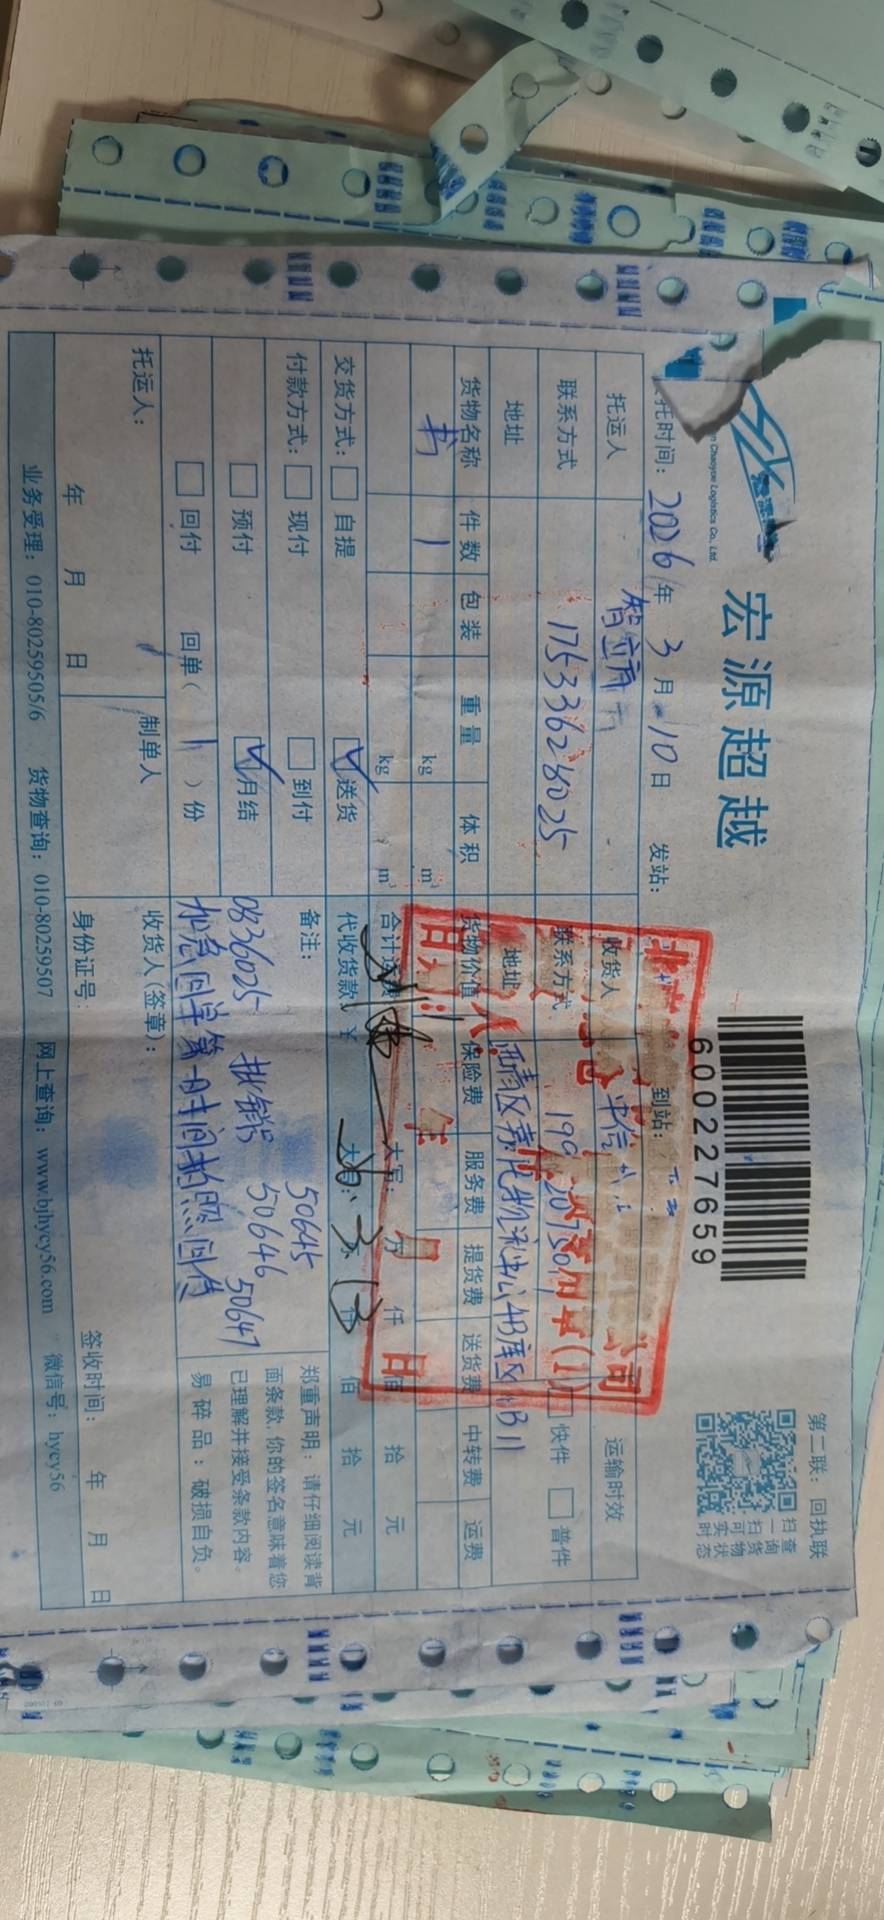 宏源超越
n Chaoyue Logistics Co., Ltd.
6002227659
第二联：回执联
扫一扫可实时
查询货物状态
托时间：2026年3月10日 发站： 到站：
托运人 智立方
收货人 中信
运输时效
联系方式 17533628025
联系方式 199
快件 普件
地址
地址 西青区 物流中心4B库区 B11
货物名称 件数 包装 重量 体积 货物价值 保险费 服务费 提货费 送货费 中转费 运费
书 1 kg m³
kg m³
合计运 大写： 万 仟 佰 拾 元
交货方式： 自提 送货
代收货款 ¥ 佰 拾 元
付款方式： 现付 到付
预付 月结
回付 回单（ 1 ）份
备注：
50645
0836025 批销 50646 50647
加急回单第一时间拍照回传
郑重声明：请仔细阅读背
面条款，你的签名意味着您
已理解并接受条款内容。
易碎品：破损自负。
托运人：
制单人
收货人(签章)：
年 月 日
身份证号：
签收时间： 年 月 日
业务受理：010-80259505/6 货物查询：010-80259507 网上查询：www.bjhycy56.com 微信号：hycy56